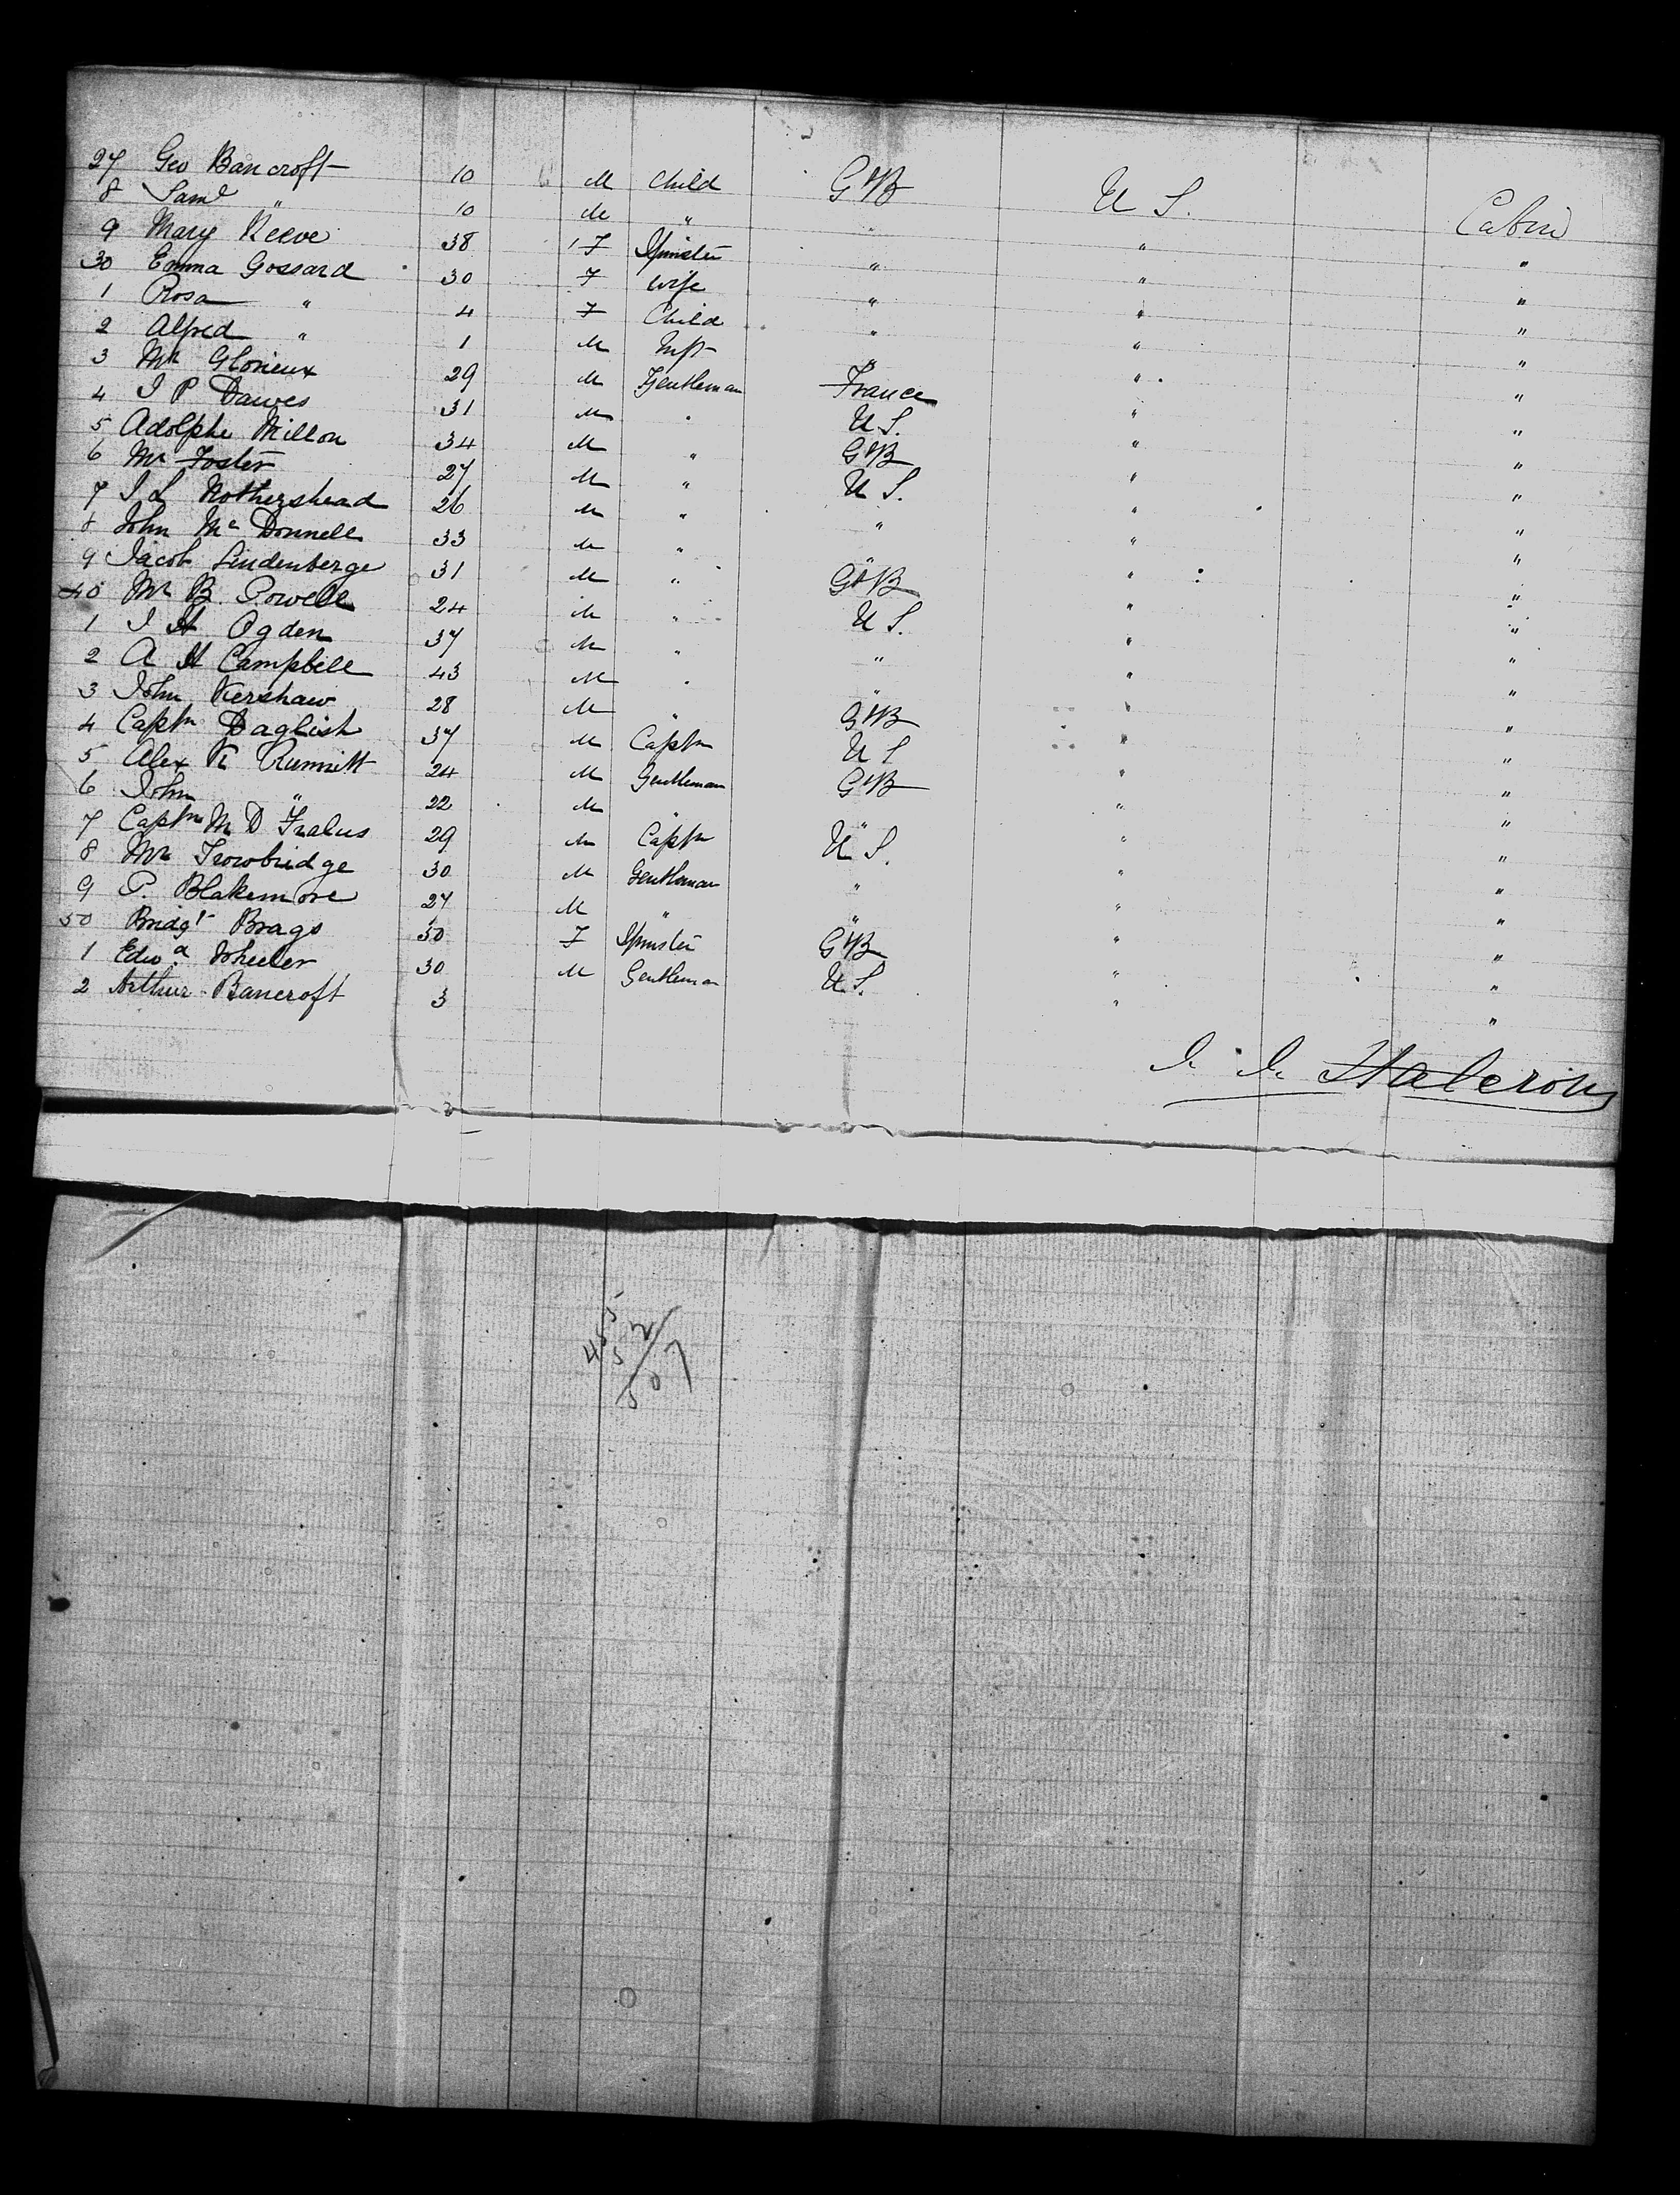 27 Geo Bancroft 10 M Child G B U S. Cabin
8 Saml " 10 M " " " "
9 Mary Reeve 38 F Spinster " " "
30 Emma Gossard 30 F Wife " " "
1 Rosa " 4 F Child " " "
2 Alfred " 1 M Inft " " "
3 Mr Glorieux 29 M Gentleman France " "
4 J P Dawes 31 M " U S. " "
5 Adolphe Millon 34 M " G B " "
6 Mr Foster 27 M " U S. " "
7 J L Mothershead 26 M " " " "
8 John Mc Donnell 33 M " " " "
9 Jacob Lindenberge 31 M " G B " "
40 Mr B. Powell 24 M " U S. " "
1 J H Ogden 37 M " " " "
2 A H Campbell 43 M " " " "
3 John Kershaw 28 M " G B " "
4 Captn Daglish 37 M Captn U S " "
5 Alex K 24 M Gentleman G B " "
6 John " 22 M " " " "
7 Captn M D 29 M Captn U S. " "
8 Mr Trowbridge 30 M Gentleman " " "
9 P. Blakemore 27 M " " " "
50 Bridgt Brags 50 F Spinster G B " "
1 Edwd Wheeler 30 M Gentleman U.S. " "
2 Arthur Bancroft 3 " "
455
52
507